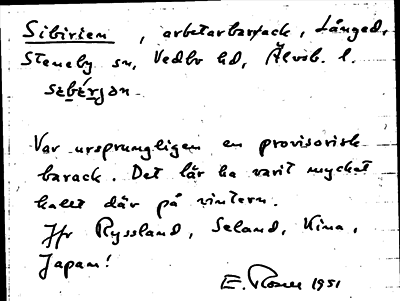 Sibirien, arbetarbarack, Långed,
Steneby sn, Vedbo hd, Älvsb. l.
Var ursprungligen en provisorisk
barack. Det lär ha varit mycket
kallt där på vintern.
Jfr Ryssland, Seland, Kina,
Japan!
E. 1951